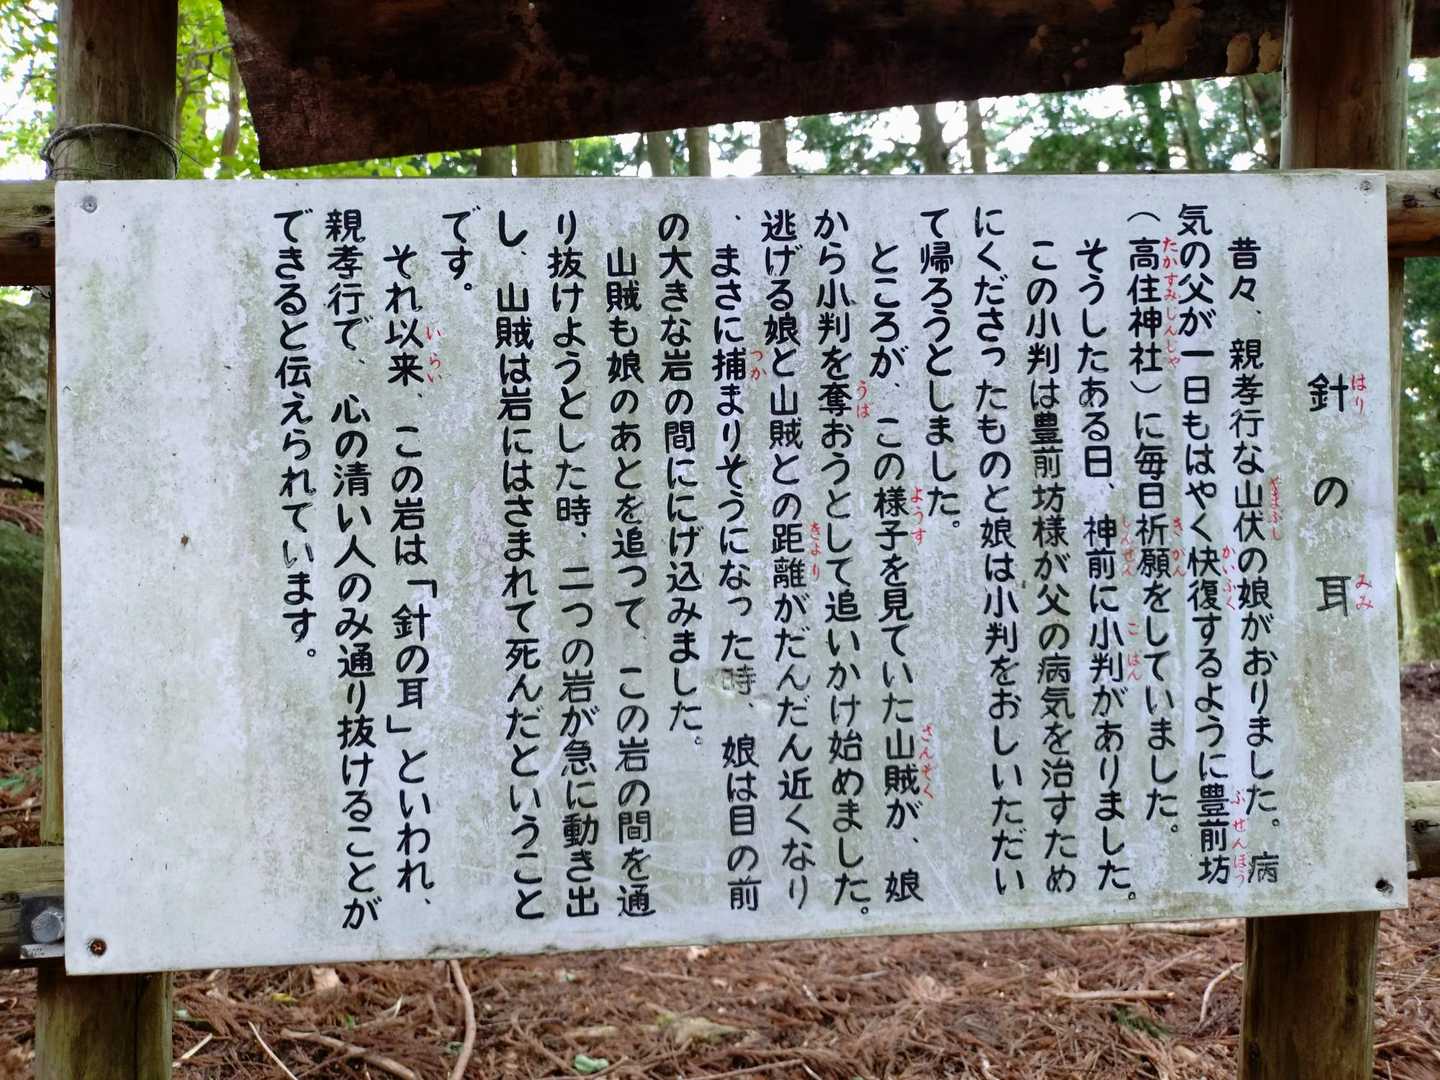 針の耳
昔々、親孝行な山伏の娘がおりました。病
気の父が一日もはやく快復するように豊前坊
（高住神社）に毎日祈願をしていました。
そうしたある日、神前に小判がありました。
この小判は豊前坊様が父の病気を治すため
にくださったものと娘は小判をおしいただい
て帰ろうとしました。
ところが、この様子を見ていた山賊が、娘
から小判を奪おうとして追いかけ始めました。
逃げる娘と山賊との距離がだんだん近くなり
、まさに捕まりそうになった時、娘は目の前
の大きな岩の間ににげ込みました。
山賊も娘のあとを追って、この岩の間を通
り抜けようとした時、二つの岩が急に動き出
し、山賊は岩にはさまれて死んだということ
です。
それ以来、この岩は「針の耳」といわれ、
親孝行で、心の清い人のみ通り抜けることが
できると伝えられています。